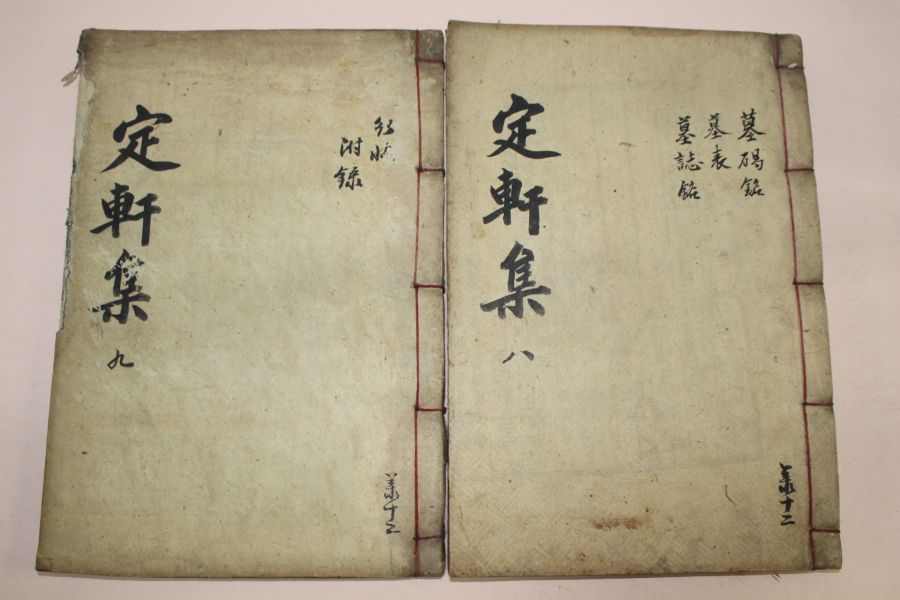 墓碣銘
墓表
墓誌銘
定軒集
八
十二
行狀
附錄
定軒集
九
十二